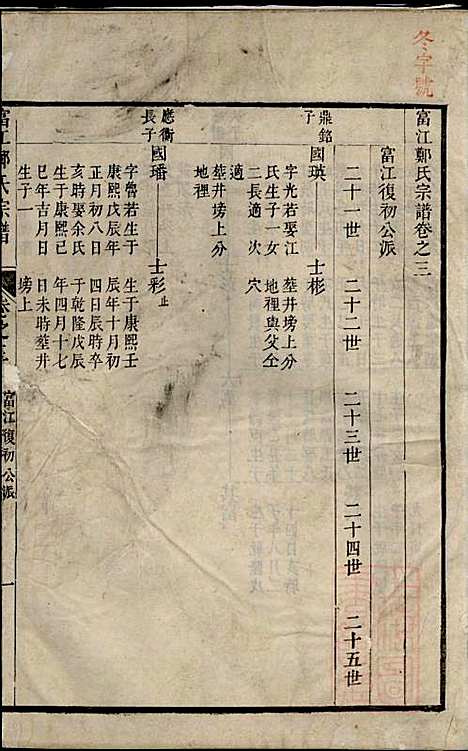 冬字號
富江鄭氏宗譜卷之三
富江復初公派
二十一世 二十二世 二十三世 二十四世 二十五世
鼎銘子
國瑛 士彬
字光若娶江 塟井塝上分
氏生子一女 地裡與父仝
二長適 次 穴
適
塟井塝上分
地裡
應衢長子
國璠 士彩止
字魯若生于 生于康熙壬
康熙戊辰年 辰年十月初
正月初八日 四日辰時卒
亥時娶余氏 于乾隆戊辰
生于康熙己 年四月十七
巳年吉月日 日未時塟井
生子一 塝上
富江鄭氏宗譜 卷之三 富江復初公派 一